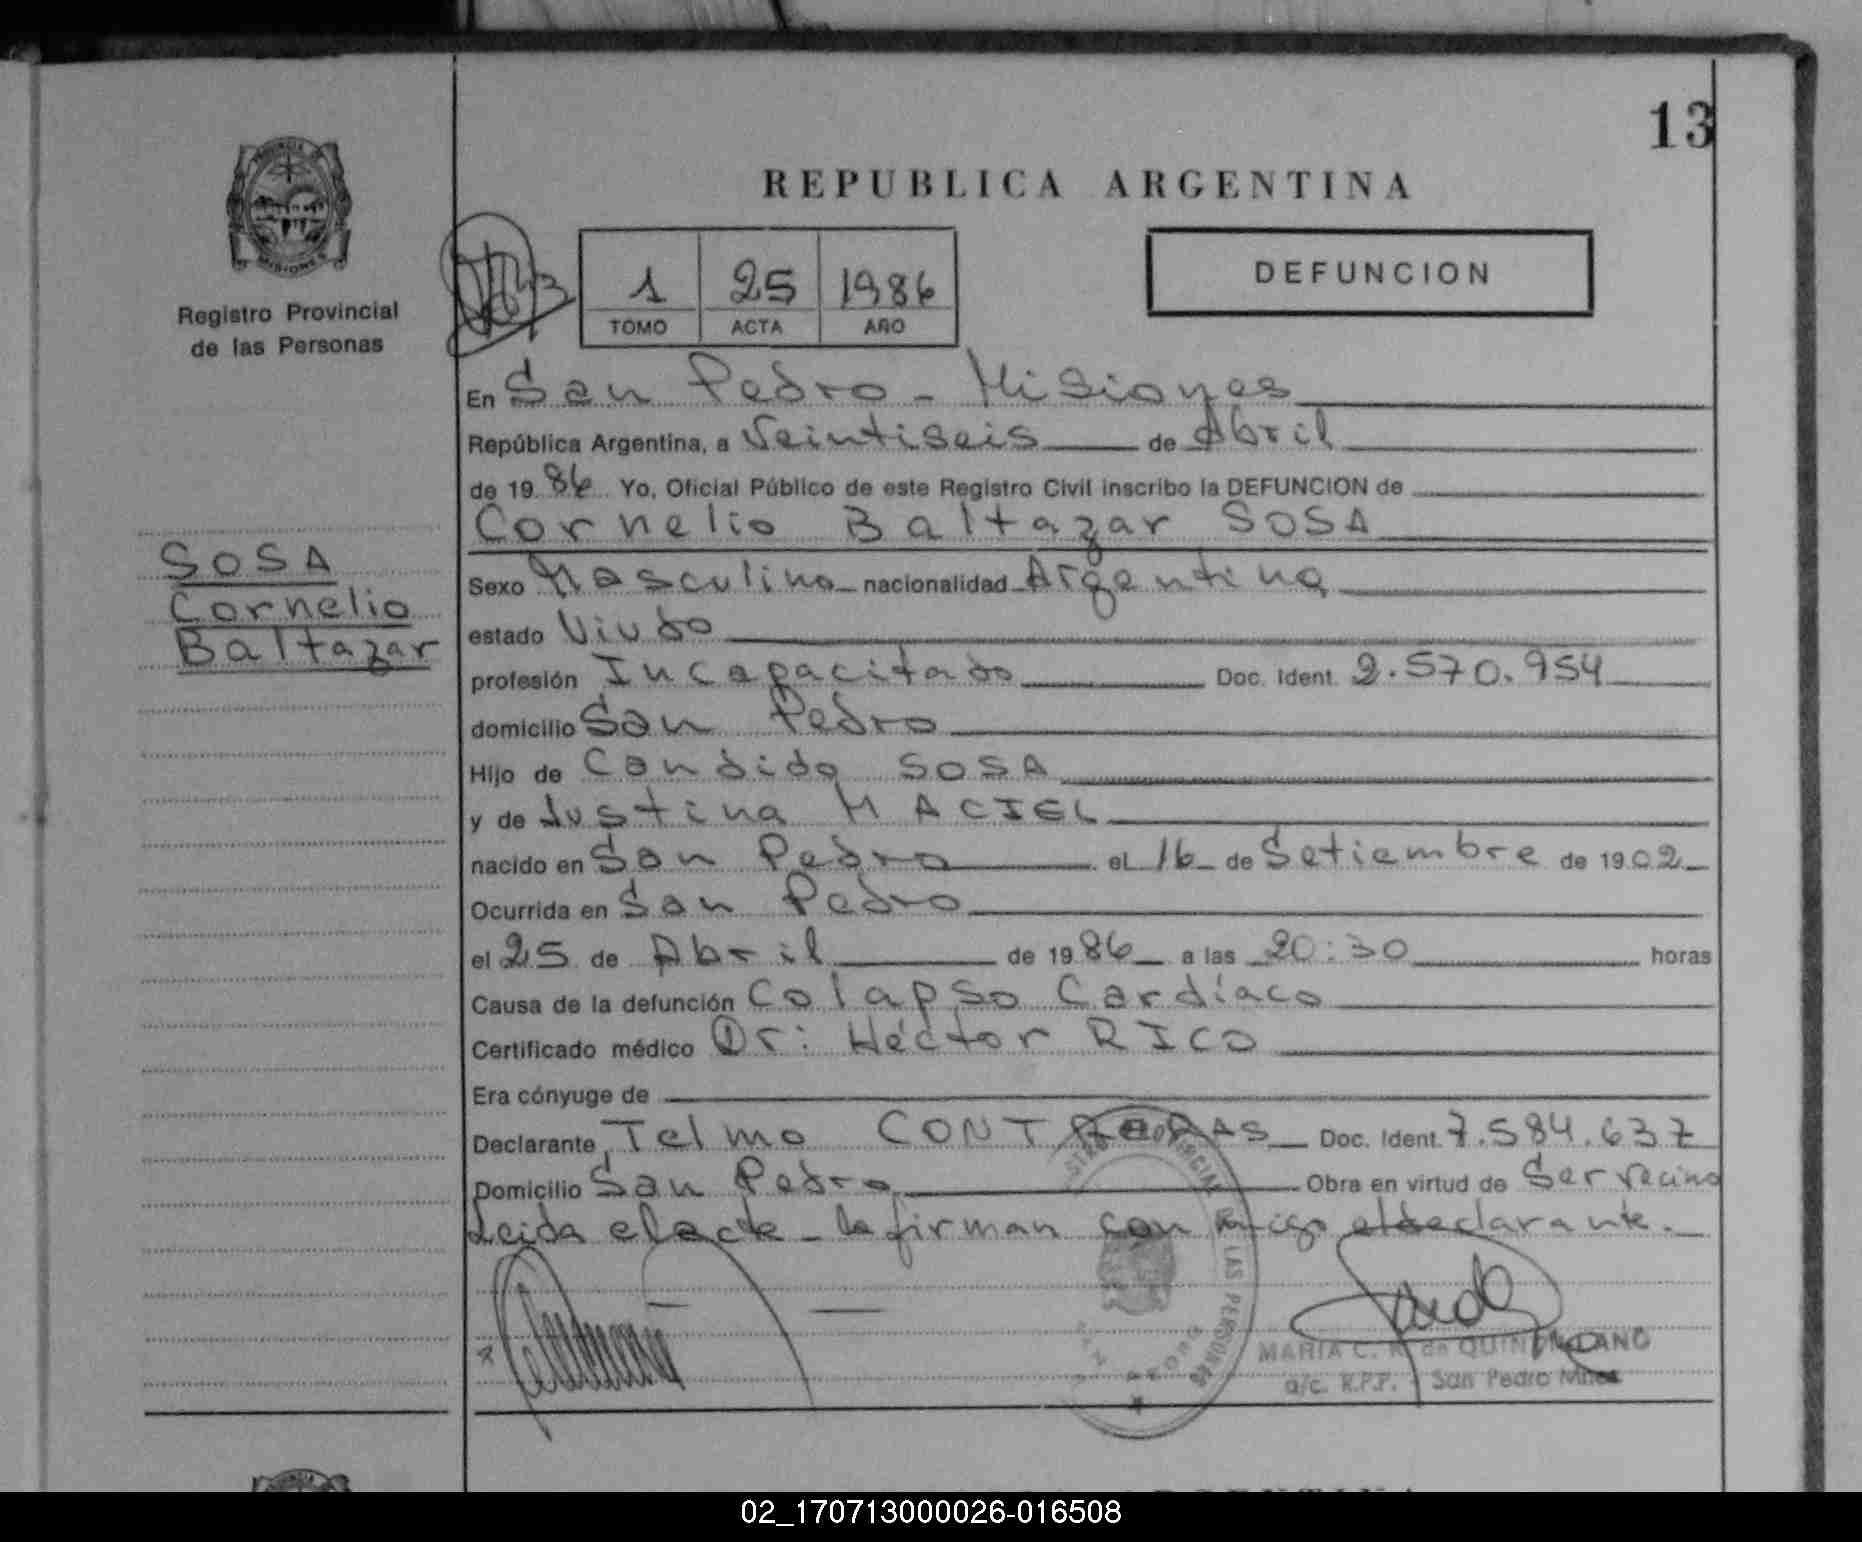 13
REPUBLICA ARGENTINA
PROVINCIA DE
MISIONES
Registro Provincial
de las Personas
1 25 1986
TOMO ACTA AÑO
DEFUNCION
En San Pedro - Misiones
República Argentina, a Veintiseis de Abril
de 1986 Yo, Oficial Público de este Registro Civil inscribo la DEFUNCION de
Cornelio Baltazar SOSA
SOSA
Cornelio
Baltazar
Sexo Masculino nacionalidad Argentina
estado Viudo
profesión Incapacitado Doc. Ident. 2.570.954
domicilio San Pedro
Hijo de Candido SOSA
y de Justina MACIEL
nacido en San Pedro el 16 de Setiembre de 1902
Ocurrida en San Pedro
el 25 de Abril de 1986 a las 20:30 horas
Causa de la defunción Colapso Cardíaco
Certificado médico Dr: Héctor RICO
Era cónyuge de
Declarante Telmo CONTRERAS Doc. Ident. 7.584.637
Domicilio San Pedro Obra en virtud de Ser vecino
Leida el acta - la firman con migo el declarante.
MARIA C. R. de
a/c. R.P.P. - San Pedro Mnes
LAS PERSONAS
SAN PEDRO
02_170713000026-016508